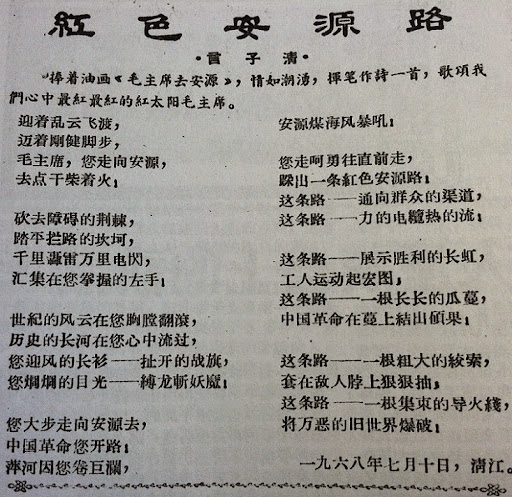 紅色安源路
·言子清·
捧着油画《毛主席去安源》，情如潮湧，揮笔作詩一首，歌頌我
們心中最紅最紅的紅太阳毛主席。
迎着乱云飞渡，
迈着剛健脚步，
毛主席，您走向安源，
去点干柴着火！
砍去障碍的荆棘，
踏平拦路的坎坷，
千里灏雷万里电閃，
汇集在您拳握的左手！
世紀的风云在您胸膛翻滾，
历史的长河在您心中流过，
您迎风的长衫——扯开的战旗，
您烱烱的目光——縛龙斬妖魔！
您大步走向安源去，
中国革命您开路！
萍河因您卷巨瀾，
安源煤海风暴吼！
您走呵勇往直前走，
踩出一条紅色安源路！
这条路——通向群众的渠道，
这条路——力的电纜热的流！
这条路——展示胜利的长虹，
工人运动起宏图！
这条路——一根长长的瓜蔓，
中国革命在蔓上結出碩果！
这条路——一根粗大的絞索，
套在敌人脖上狠狠抽！
这条路——一根集束的导火綫，
将万恶的旧世界爆破！
一九六八年七月十日，清江。